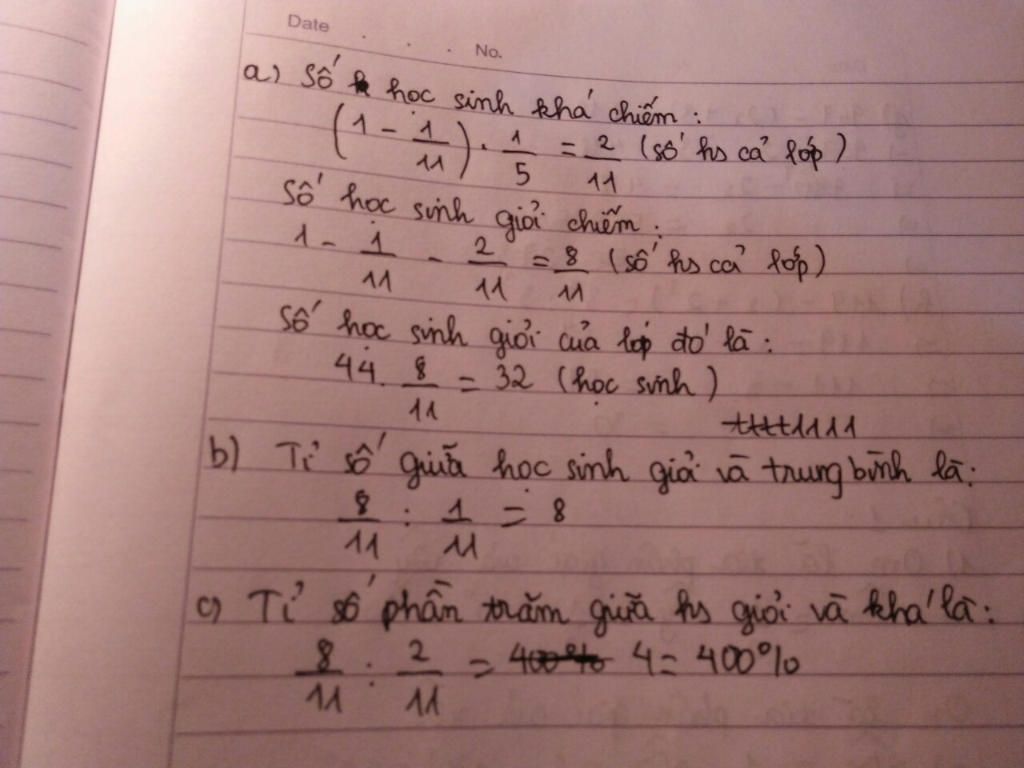 Date . . . No.
a) Số học sinh khá chiếm :
(1 - 1/11) . 1/5 = 2/11 (số hs cả lớp)
Số học sinh giỏi chiếm :
1 - 1/11 - 2/11 = 8/11 (số hs cả lớp)
Số học sinh giỏi của lớp đó là :
44 . 8/11 = 32 (học sinh)
b) Tỉ số giữa học sinh giỏi và trung bình là :
8/11 : 1/11 = 8
c) Tỉ số phần trăm giữa hs giỏi và khá là :
8/11 : 2/11 = 400% 4 = 400%